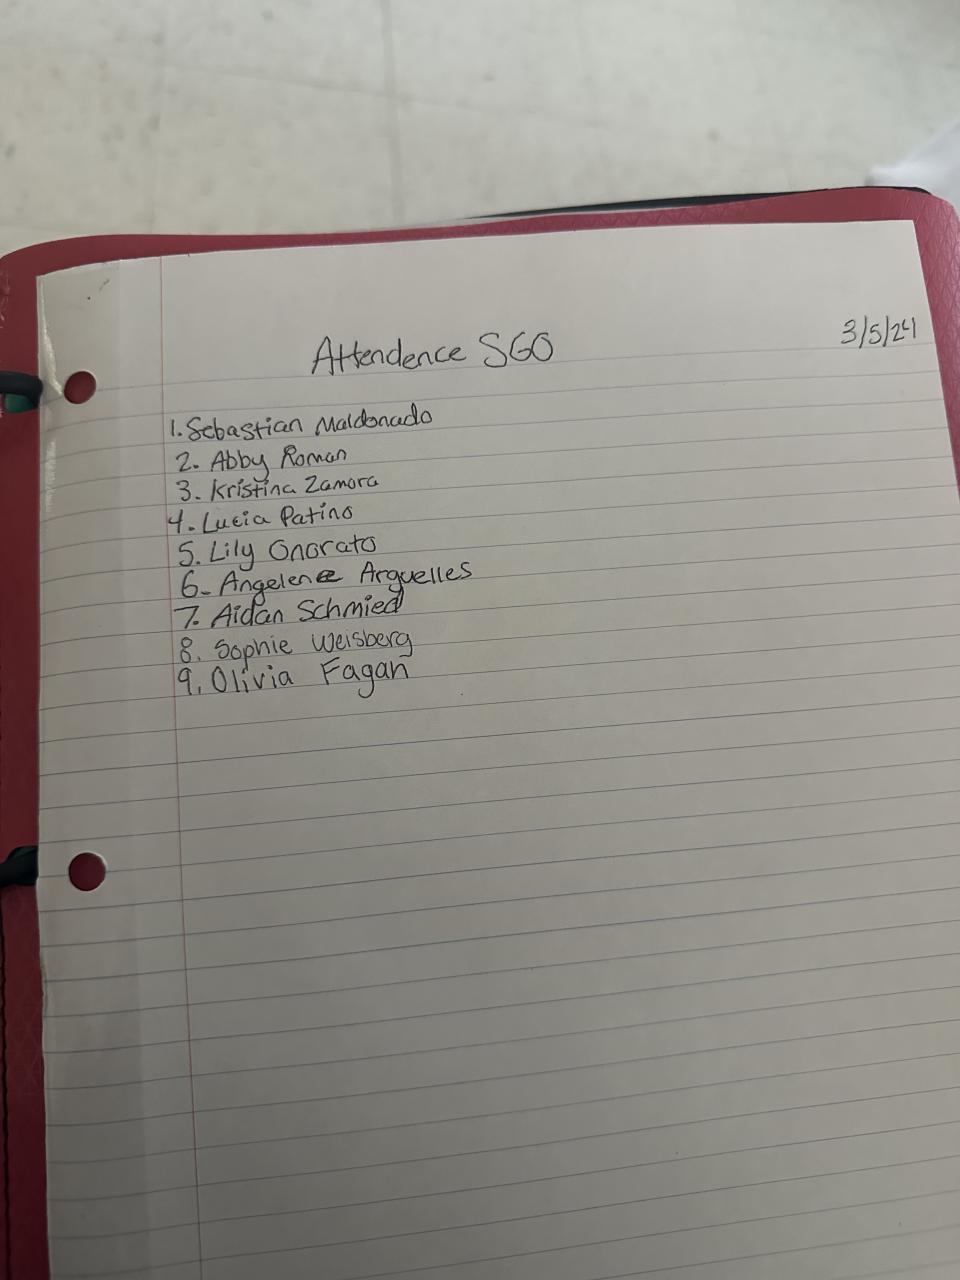 Attendence SGO
3/5/24
1. Sebastian Maldonado
2. Abby Roman
3. Kristina Zamora
4. Lucia Patino
5. Lily Onorato
6. Angelene Arguelles
7. Aidan Schmied
8. Sophie Weisberg
9. Olivia Fagan